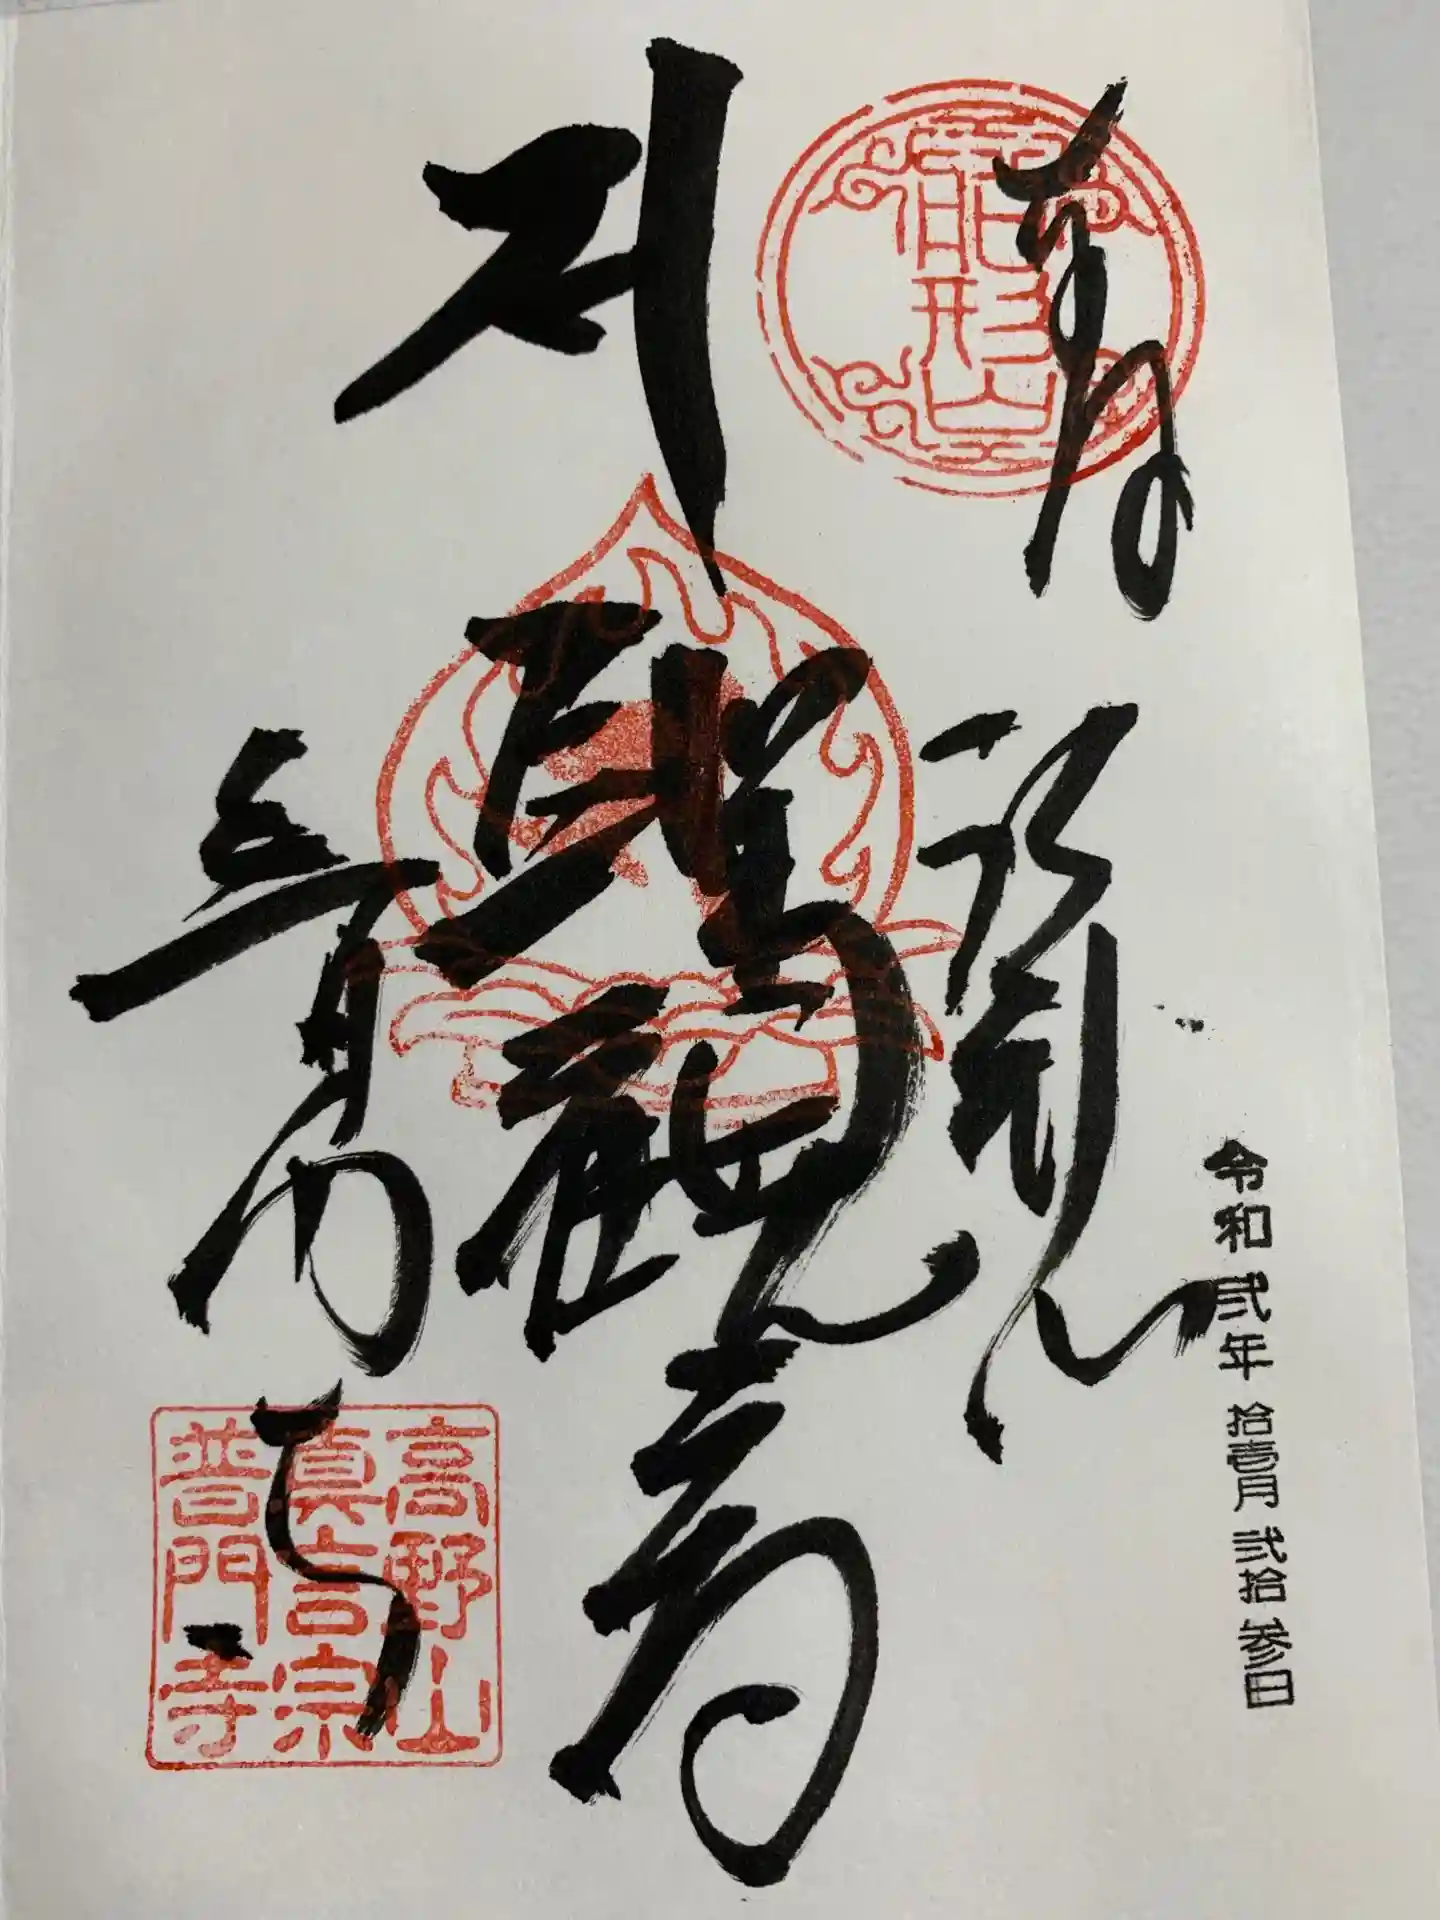 奉
令和弐年 拾壹月 弐拾参日
聖観音
普門寺
高野山
真言宗
普門寺